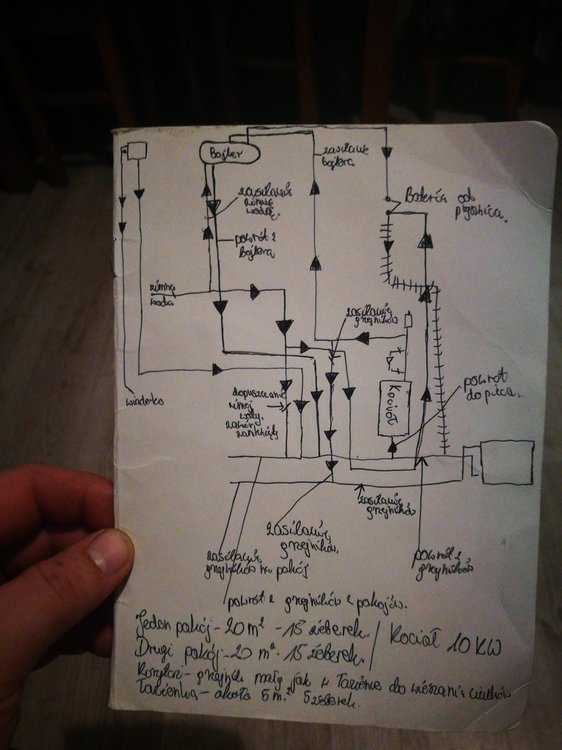 Bojler
zasilanie
bojlera
zasilanie
zimnej
wody.
powrót z
bojlera
Bateria od
prysznica.
zimna
woda
zasilanie
grzejników
wiaderko
dopuszczanie
zimnej
wody.
zawór
zamknięty
Kocioł
powrót
do pieca.
zasilanie
grzejników.
zasilanie
grzejników
zasilanie
grzejników na pokój
powrót z
grzejników
powrót z grzejników z pokojów.
Jeden pokój - 20 m² - 18 żeberek. / Kocioł 10 KW
Drugi pokój - 20 m² 15 żeberek.
- grzejnik mały jak w łazience do wieszania ciuchów
Łazienka - około 6 m² 5 żeberek.